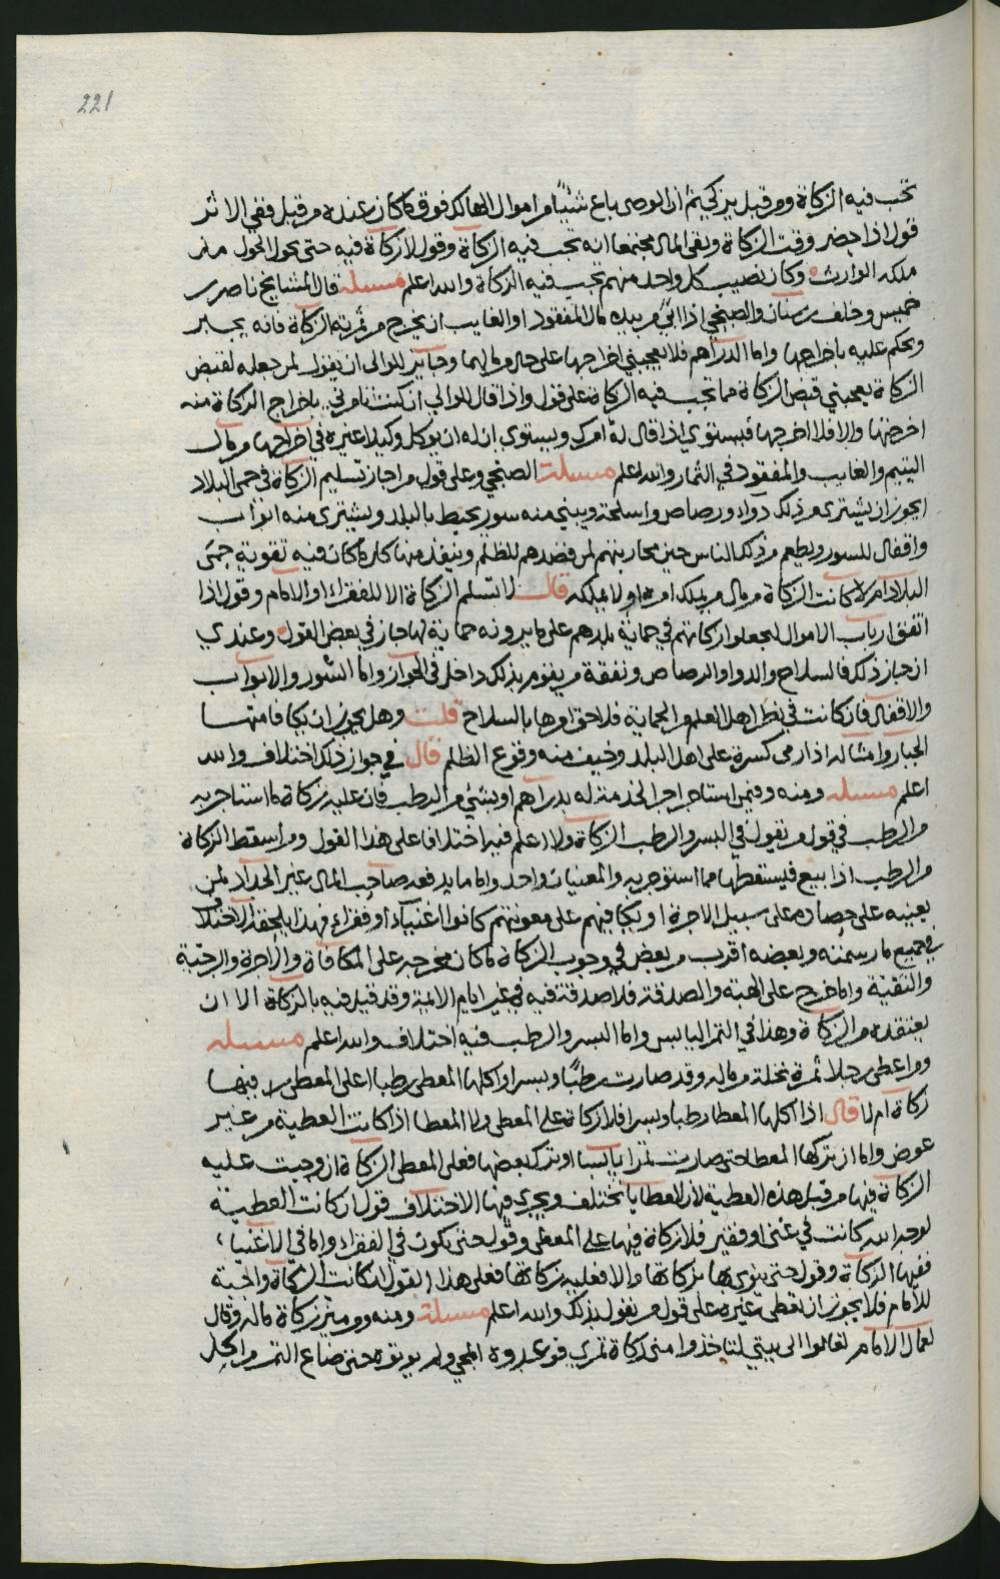 221
تجب فيه الزكاة ومن قبل يزكي ثم ان الوصي باع شيئا من اموال الهالك فوق ما كان عنده من قبل ففي الاثر
قول اذا حضر وقت الزكاة وبقي المال مجتمعا انه تجب فيه الزكاة وقول لا زكاة فيه حتى يحول الحول منذ
ملكه الوارث وكان نصيب كل واحد منهم تجب فيه الزكاة والله اعلم مسئلة قال المشايخ ناصر بن
خميس وخلف بن سنان والصبحي اذا ابى من بيده مال المفقود او الغايب ان يخرج من ثمرته الزكاة فانه يجبر
ويحكم عليه باخراجها واما الدراهم فلا يعجبني اخراجها على حال من مالهما وجايز للوالي ان يقول لمن جعله لقبض
الزكاة يعجبني قبض الزكاة مما تجب فيه الزكاة على قول واذا قال للوالي ان كنت تامرني باخراج الزكاة منه
اخرجتها والا فلا اخرجها فيستوي اذا قال له امرك ويستوي ان له ان يوكل وكيلا غيره في اخراجها من مال
اليتيم والغايب والمفقود في الثمار والله اعلم مسئلة الصبحي وعلى قول من اجاز تسليم الزكاة في حمى البلاد
ايجوز ان يشتري من ذلك دواء ورصاص واسلحة ويبنى منه سور يحيط بالبلد ويشترى منه ابواب
واقفال للسور ويطعم من ذلك الناس حين محاربتهم لمن قصدهم للظلم وينفذ منها كل ما كان فيه تقوية حمى
البلاد ام لا كانت الزكاة من مال من يملك امره او لا يملكه قال لا تسلم الزكاة الا للفقراء او الامام وقول اذا
اتفق ارباب الاموال ليجعلوا زكاتهم في حماية بلدهم على ما يرونه حماية لها جاز في بعض القول وعندي
ان جاز ذلك فالسلاح والدواء والرصاص ونفقة من يقوم بذلك داخل في الجواز واما السور والابواب
والاقفال فان كانت في نظر اهل العلم من الحماية فلاحق امرها بالسلاح قلت وهل يجوز ان يكافا منها
الجبار وامثاله اذا رمى كسرة على اهل البلد وخيف منه وقوع الظلم قال في جواز ذلك اختلاف والله
اعلم مسئلة ومنه وفيمن استاجر اجيرا لخدمته له بدراهم او بشيء من الرطب فان عليه زكاة ما استاجر به
من الرطب في قول من يقول في البسر والرطب الزكاة ولا اعلم فيه اختلافا على هذا القول ومن اسقط الزكاة
من الرطب اذا بيع فيسقطها مما استوجر به والمعنيان واحد واما ما يدفعه صاحب المال غير الجداد لمن
يعينه على حصاده على سبيل الاجرة او يكافيهم على معونتهم كانوا اغنياء او فقراء فهذا يلحقه الاختلاف
في جميع ما رسمته وبعضه اقرب من بعض في وجوب الزكاة ما كان مخرجه على المكافاة والاجرة والرحبة
والتقية واما خرج على الهبة والصدقة فلا صدقة فيه في غير ايام الائمة وقد قيل فيه بالزكاة الا ان
يعتقده من الزكاة وهذا في التمر اليابس واما البسر والرطب ففيه اختلاف والله اعلم مسئلة
ومن اعطى رجلا ثمرة نخلة من ماله وقد صارت رطبا وبسرا واكلها المعطى رطبا اعلى المعطي فيها
زكاة ام لا قال اذا اكلها المعطا رطبا وبسرا فلا زكاة على المعطي ولا المعطا اذا كانت العطية من غير
عوض واما ان تركها المعطا حتى صارت تمرا يابسا او ترك بعضها فعلى المعطي الزكاة ان وجبت عليه
الزكاة فيها من قبل هذه العطية لان العطايا تختلف ويجري فيها الاختلاف قول ان كانت العطية
لوجه الله كانت في غني او فقير فلا زكاة فيها على المعطي وقول حتى تكون في الفقراء واما في الاغنياء
ففيها الزكاة وقول حتى ينوي بها من زكاتها والا فعليه زكاتها فعلى هذا القول ان كانت الزكاة واجبة
للامام فلا يجوز ان تعطى غيره على قول من يقول بذلك والله اعلم مسئلة ومنه ومن ميز زكاة ماله وقال
لعمال الامام تعالوا الى بيتي لتاخذوا مني زكاة تمري فوعدوه المجي ولم ياتوه حتى ضاع التمر من اجل